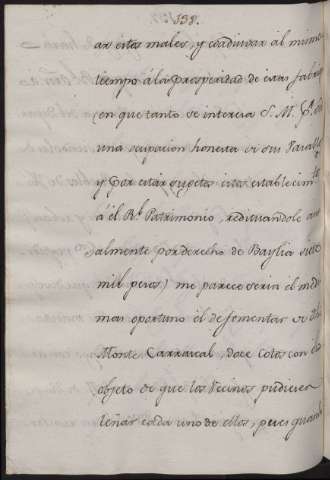 138.
ar estos males, y coadiuvar al mismo
tiempo á la prosperidad de estas fabricas
(en que tanto se interesa S. M. p.r
una ocupacion honesta de sus Vasall.s
y por estar sugetos estos establecim.tos
á él R.l Patrimonio, redituandole anu-
almente por derecho de Baylia siete
mil pesos) me parece seria el medio
mas oportuno él de fomentar de
Monte Carrascal, doce Cotos con
objeto de que los Vecinos pudiesen
leñar cada uno de ellos, pero guarda